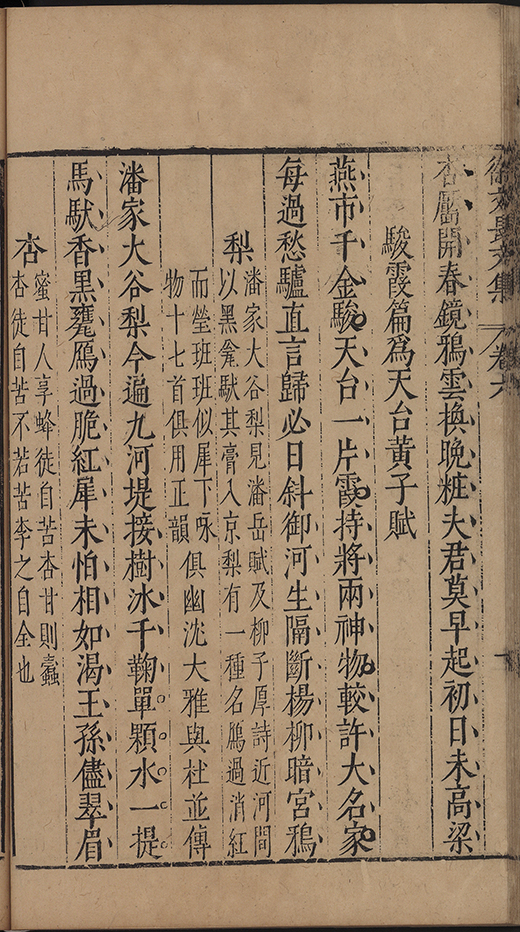 徐文長文集 卷六
杏靨開春鏡鴉雲換晚粧夫君莫早起初日未高梁
駿霞篇爲天台黃子賦
燕市千金駿天台一片霞持將兩神物較許大名家
每過愁驢直言歸必日斜御河生隔斷楊柳暗宮鴉
梨
潘家大谷梨見潘岳賦及柳子厚詩近河間
以黑龕馱其膏入京梨有一種名鴈過消紅
而瑩班班似犀下咏
物十七首俱用正韻
俱幽沈大雅與杜並傳
潘家大谷梨今遍九河堤接樹冰千鞠單顆水一提
馬馱香黑甕鴈過脆紅犀未怕相如渴王孫儘翠眉
杏
蜜甘人享蜂徒自苦杏甘則蠹
杏徒自苦不若苦李之自全也